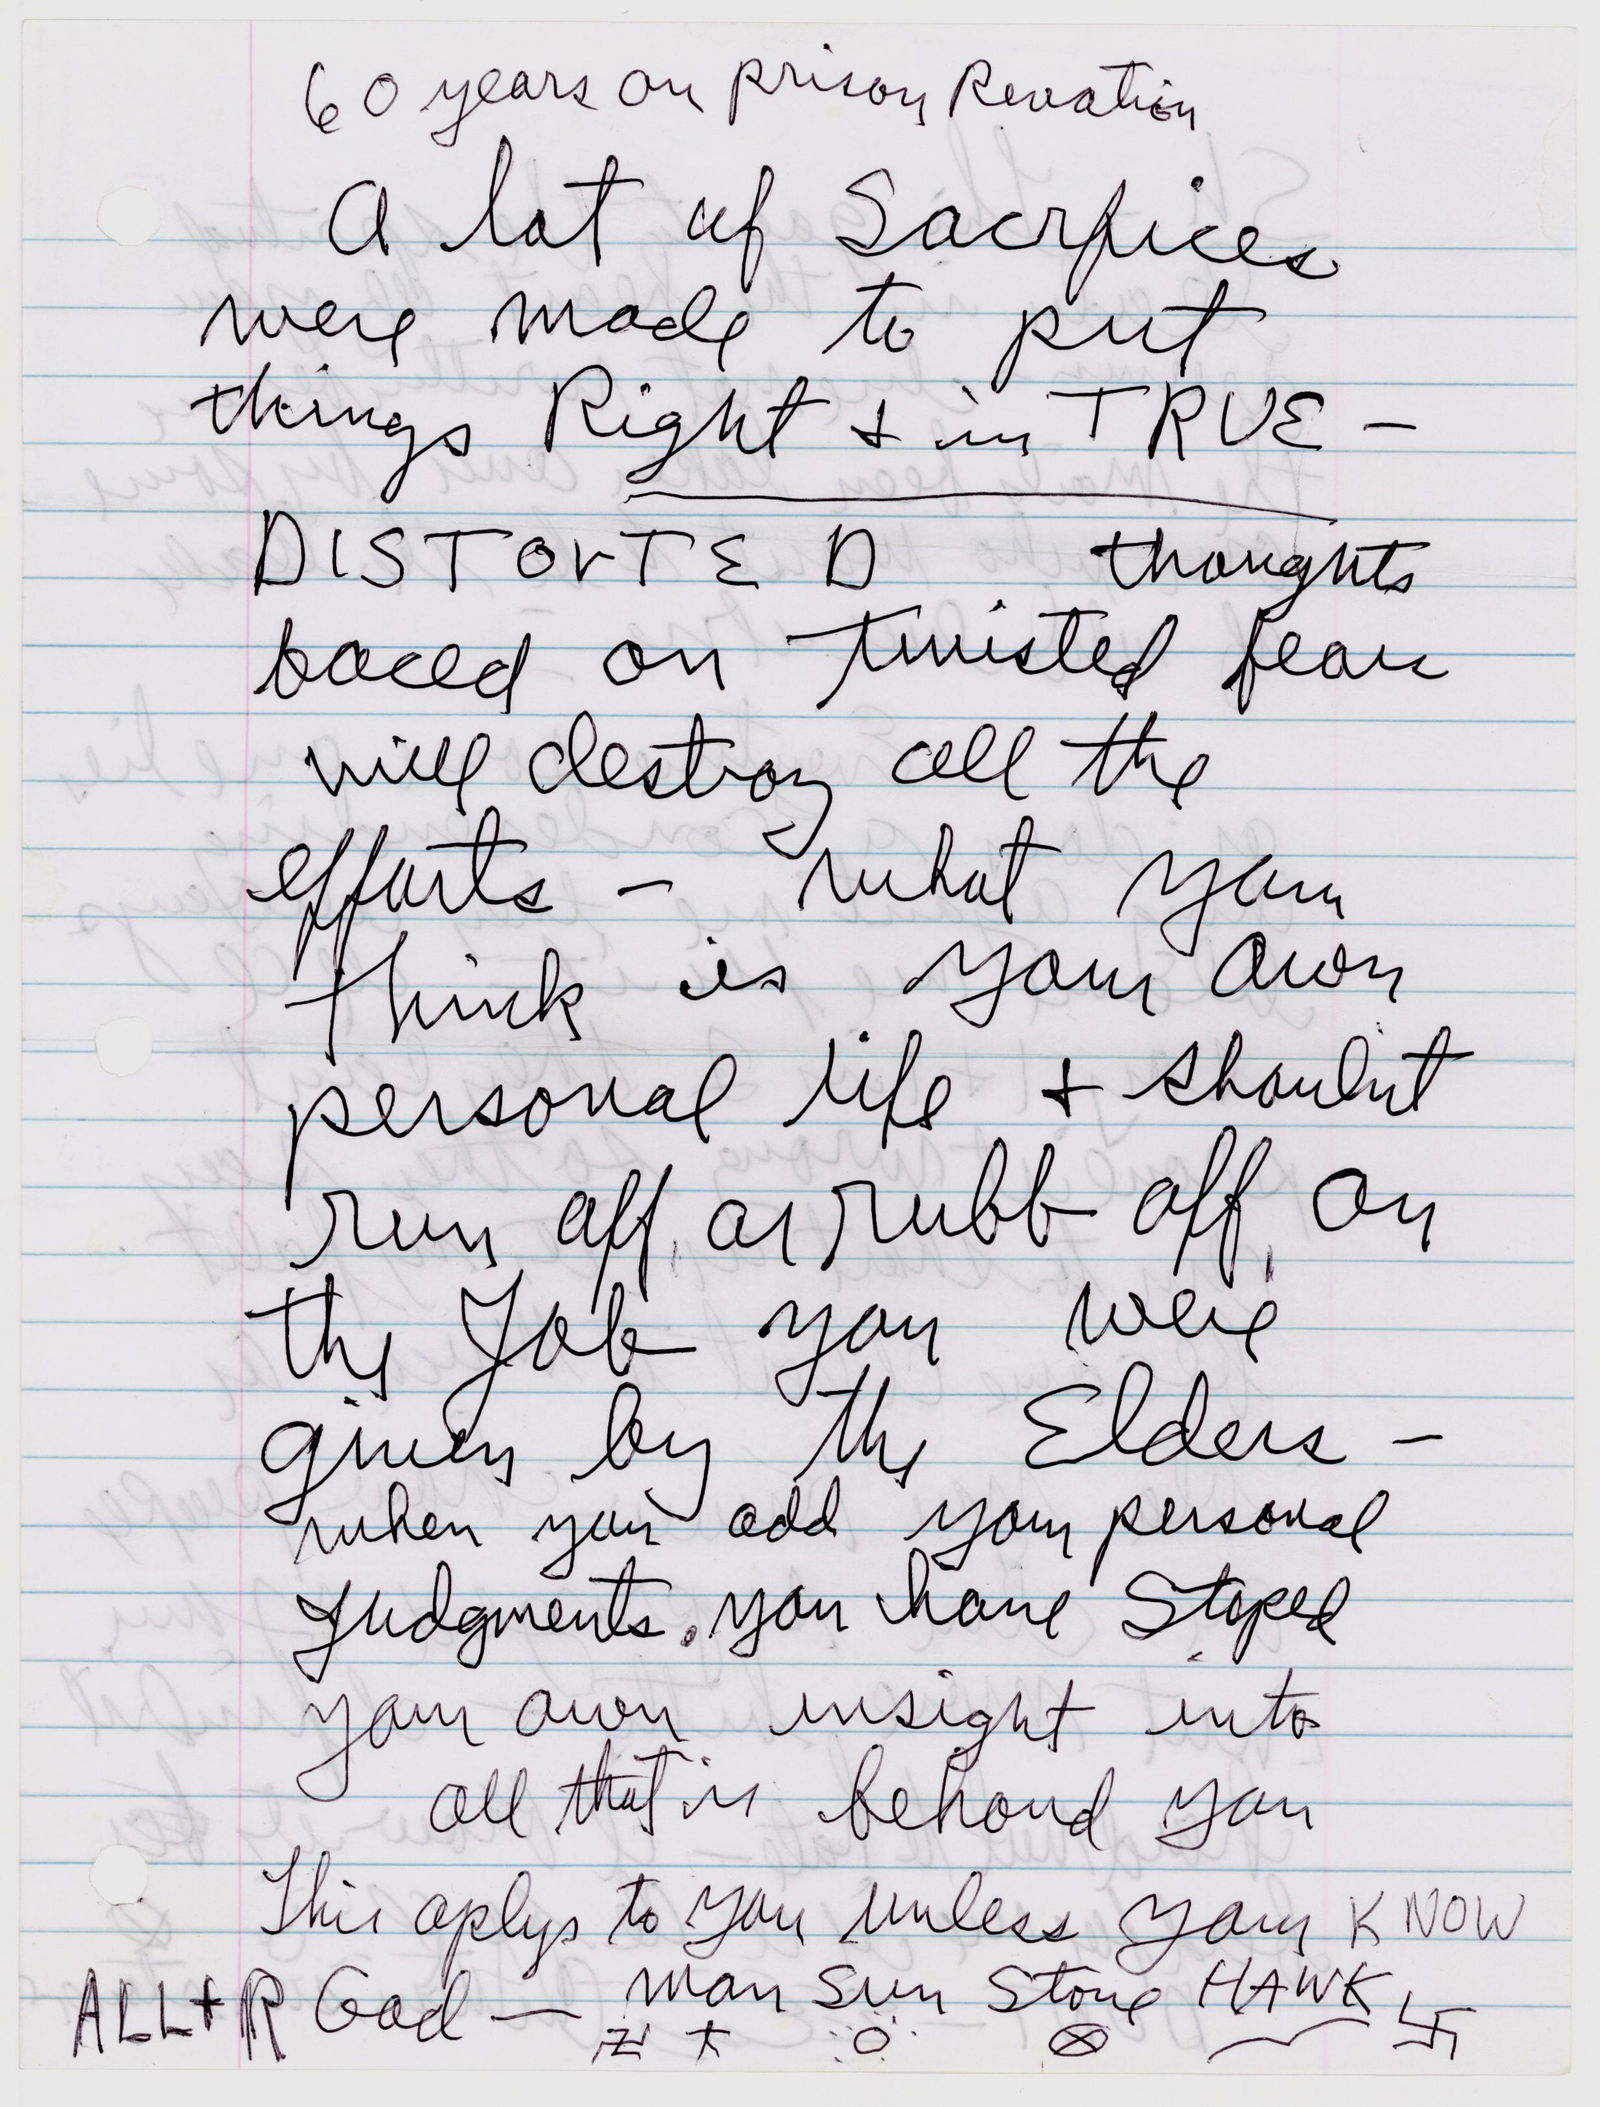 60 years on prison Revation
A lot of Sacrfices
were made to put
things Right + in TRUE -
DISTOrTED thoughts
baced on twisted fear
will destroy all the
efforts - what you
think is your own
personal life + shoulnt
run off or rubb off on
the Job you were
given by the Elders -
when you add your personal
Judgments. you have Stoped
your own insight into
all that is behond you
This aplys to you unless your KNOW
ALL + R God - man Sun Stone HAWK 卐